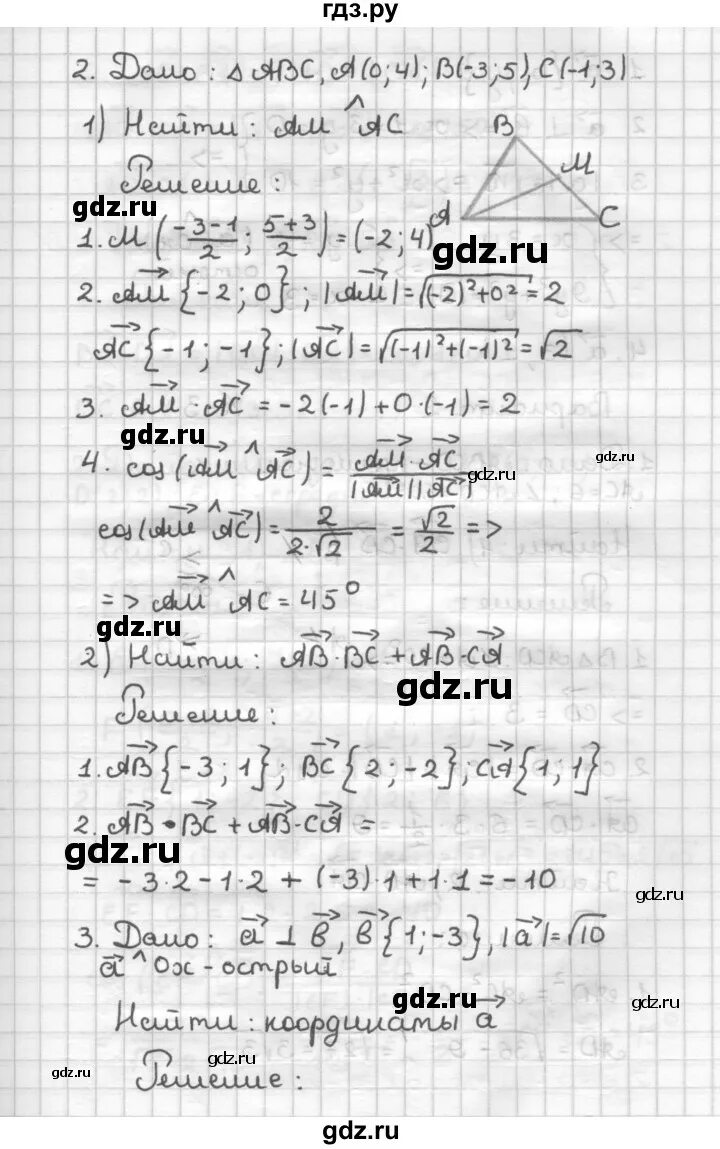 гдз.ру
2. Дано: △ ABC, A(0;4); B(-3;5), C(-1;3)
1) Найти: AM ^ AC
B
M
A
C
Решение:
gdz.ru
1. M (\frac{-3-1}{2}; \frac{5+3}{2}) = (-2; 4)
gdz.ru
2. \vec{AM} {-2; 0}; |\vec{AM}| = \sqrt{(-2)^2+0^2} = 2
\vec{AC} {-1; -1}; |\vec{AC}| = \sqrt{(-1)^2+(-1)^2} = \sqrt{2}
3. \vec{AM} · \vec{AC} = -2(-1) + 0·(-1) = 2
gdz.ru
gdz.ru
4. cos(\vec{AM} ^ \vec{AC}) = \frac{\vec{AM} · \vec{AC}}{|\vec{AM}| |\vec{AC}|}
gdz.ru
cos(\vec{AM} ^ \vec{AC}) = \frac{2}{2·\sqrt{2}} = \frac{\sqrt{2}}{2} =>
=> \vec{AM} ^ AC = 45°
gdz.ru
2) Найти: \vec{AB}·\vec{BC} + \vec{AB}·\vec{CA}
gdz.ru
Решение:
1. \vec{AB} {-3; 1}; \vec{BC} {2; -2}; \vec{CA} {1; 1}
2. \vec{AB} · \vec{BC} + \vec{AB}·\vec{CA} =
gdz.ru
= -3·2 - 1·2 + (-3)·1 + 1·1 = -10
gdz.ru
3. Дано: \vec{a} ⊥ \vec{b}, \vec{b} {1; -3}, |\vec{a}| = \sqrt{10}
\vec{a} ^ Ox - острый
gdz.ru
gdz.ru
Найти: координаты \vec{a}
gdz.ru
gdz.ru
Решение:
gdz.ru
gdz.ru